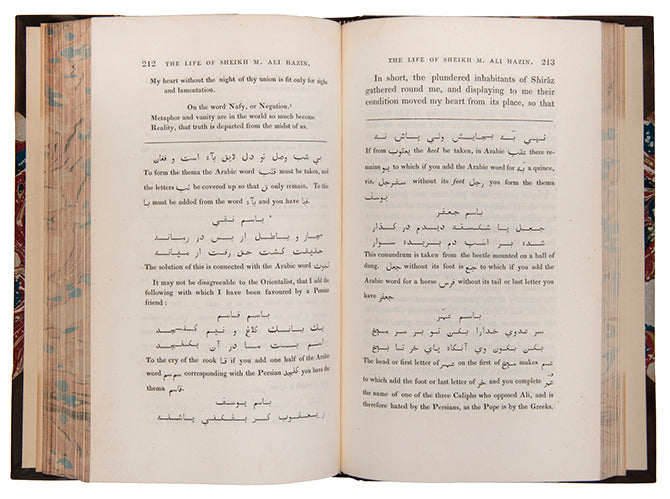 212 THE LIFE OF SHEIKH M. ALI HAZIN.
My heart without the night of thy union is fit only for sighs
and lamentation.
On the word Nafy, or Negation.¹
Metaphor and vanity are in the world so much become
Reality, that truth is departed from the midst of us.
بي شب وصل تو دل لايق بآه است و فغان
To form the thema the Arabic word قلب must be taken, and
the letters لب be covered up so that ق only remain. To this
با must be added from the word بآه and you have
باسم نفي
مجاز و باطل از بس در زمانه
حقيقت كشت حق رفت از ميانه
The solution of this is connected with the Arabic word
It may not be disagreeable to the Orientalist, that I add the
following with which I have been favoured by a Persian
friend:
باسم قاسم
يك بانك كلاغ و نيم
اسم بت ما در آن
To the cry of the rook قا if you add one half of the Arabic
word سم سم corresponding with the Persian you have the
thema قاسم.
باسم يوسف
ز يعقوب كر بفكني پاشنه
THE LIFE OF SHEIKH M. ALI HAZIN. 213
In short, the plundered inhabitants of Shirâz
gathered round me, and displaying to me their
condition moved my heart from its place, so that
نهي به بجايش وني پاش نه
If from يعقوب the heel be taken, in Arabic عقب there re-
mains يو to which if you add the Arabic word for به a quince,
viz. سفرجل without its foot رجل you form the thema
يوسف
باسم جعفر
جعل پا شكسته ديدم در كذار
شده بر اسب دم بريده سوار
This conundrum is taken from the beetle mounted on a ball of
dung. جعل without its foot is جع to which if you add the
Arabic word for a horse فرس without its tail or last letter you
have جعفر
باسم عمر
سر عدوي خدارا بكن تو بر سر
بكن بكون وي آنكاه پاي خر تا
The head or first letter of on the first of makes
to which add the foot or last letter of خر and you complete عمر
the name of one of the three Caliphs who opposed Ali, and is
therefore hated by the Persians, as the Pope is by the Greeks.